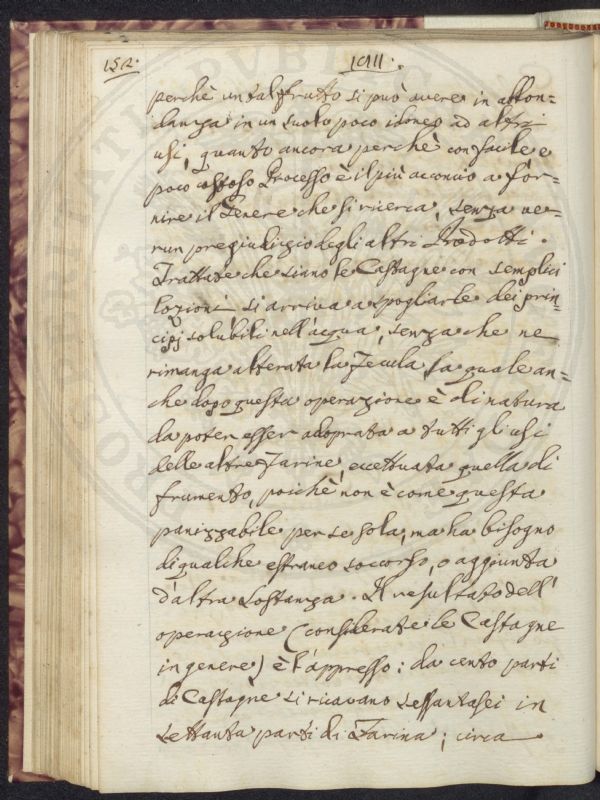 152. 1911.
perchè un tal frutto si può avere in abbon=
danza in un suolo poco idoneo ad altri
usi, quanto ancora perchè con facile e
poco costoso Processo è il più acconcio a for=
nire il Genere che si ricerca, senza ve=
run pregiudizio degli altri Prodotti.
Trattate che siano le Castagne con semplici
lozioni si arriva a spogliarle dei prin=
cipj solubili nell'acqua, senza che ne
rimanga alterata la Fecula, la quale an=
che dopo questa operazione è di natura
da poter esser adoprata a tutti gli usi
delle altre Farine, eccettuata quella di
frumento, poichè non è come questa
panizzabile per se sola, ma ha bisogno
di qualche estraneo soccorso, o aggiunta
d'altra Sostanza. Il resultato dell'
operazione (considerate le Castagne
in genere) è l'appresso: da cento parti
di Castagne si ricavano sessantasei in
settanta parti di Farina; circa